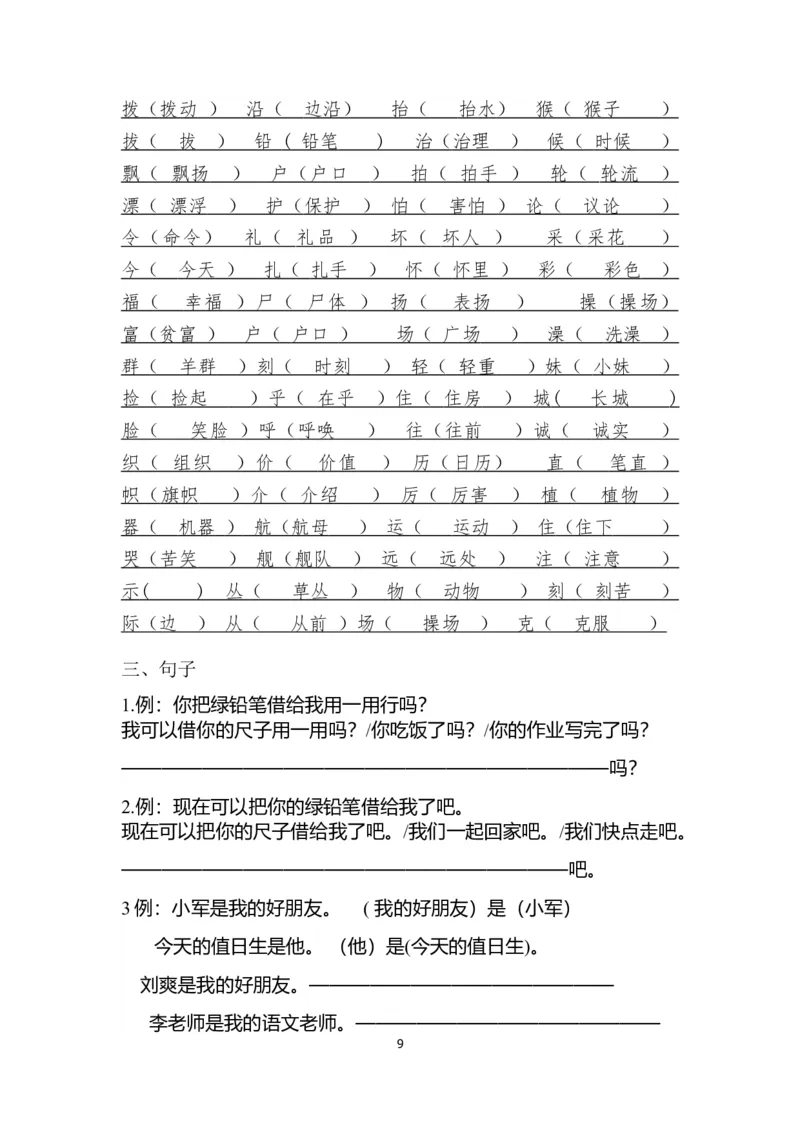 拨（拨动 ） 沿（ 边沿） 抬（ 抬水） 猴（ 猴子 ）
拔（ 拔 ） 铅 ( 铅笔 ) 治（治理 ） 候（ 时候 ）
飘（ 飘扬 ） 户（户口 ） 拍（ 拍手 ） 轮（ 轮流 ）
漂（ 漂浮 ） 护（保护 ） 怕（ 害怕 ） 论（ 议论 ）
令（命令） 礼（ 礼品 ） 坏（ 坏人 ） 采（采花 ）
今（ 今天 ） 扎（ 扎手 ） 怀（ 怀里 ） 彩（ 彩色 ）
福（ 幸福 ）尸（ 尸体 ） 扬（ 表扬 ） 操（操场）
富（贫富 ） 户（ 户口 ） 场（ 广场 ） 澡（ 洗澡 ）
群（ 羊群 ）刻（ 时刻 ） 轻（ 轻重 ）妹（ 小妹 ）
捡（ 捡起 ）乎（ 在乎 ）住（ 住房 ） 城( 长城 )
脸（ 笑脸 ）呼（呼唤 ） 往（往前 ）诚（ 诚实 ）
织（ 组织 ）价（ 价值 ） 历（日历） 直（ 笔直 ）
帜（旗帜 ）介（ 介绍 ） 厉（ 厉害 ） 植（ 植物 ）
器（ 机器 ） 航（航母 ） 运（ 运动 ） 住（住下 ）
哭（苦笑 ） 舰（舰队 ） 远（ 远处 ） 注（ 注意 ）
示( ) 丛（ 草丛 ） 物（ 动物 ） 刻（ 刻苦 ）
际（边 ） 从（ 从前 ）场（ 操场 ） 克（ 克服 ）
三、句子
1.例：你把绿铅笔借给我用一用行吗？
我可以借你的尺子用一用吗？/你吃饭了吗？/你的作业写完了吗？
————————————————————————吗？
2.例：现在可以把你的绿铅笔借给我了吧。
现在可以把你的尺子借给我了吧。/我们一起回家吧。/我们快点走吧。
——————————————————————吧。
3 例：小军是我的好朋友。 （ 我的好朋友）是（小军）
今天的值日生是他。 （他）是(今天的值日生)。
刘爽是我的好朋友。———————————————
李老师是我的语文老师。———————————————
9